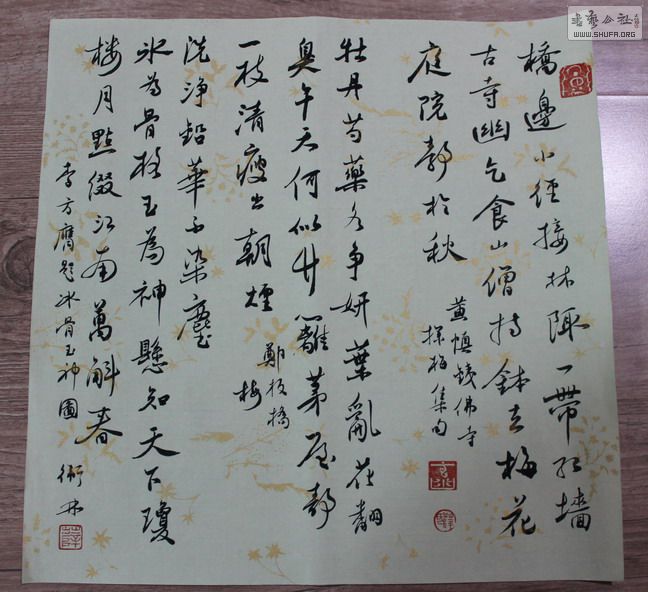 橋邊小徑接林陬一帶红墙
古寺幽乞食山僧持鉢去梅花
庭院靜於秋
黄慎錢佛寺
探梅集句
牡丹芍藥各争妍葉亂花翻
臭午天何似竹籬茅屋靜
一枝清瘦出朝煙
鄭板橋
梅
洗净鉛華不染塵
冰为骨格玉為神懸知天下瓊
楼月點缀江南萬斛春
李方膺题冰骨玉神圖
WWW.SHUFA.ORG